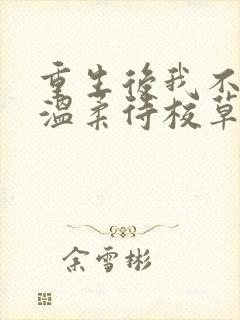 重生後我不
溫柔待校草
余雪彬